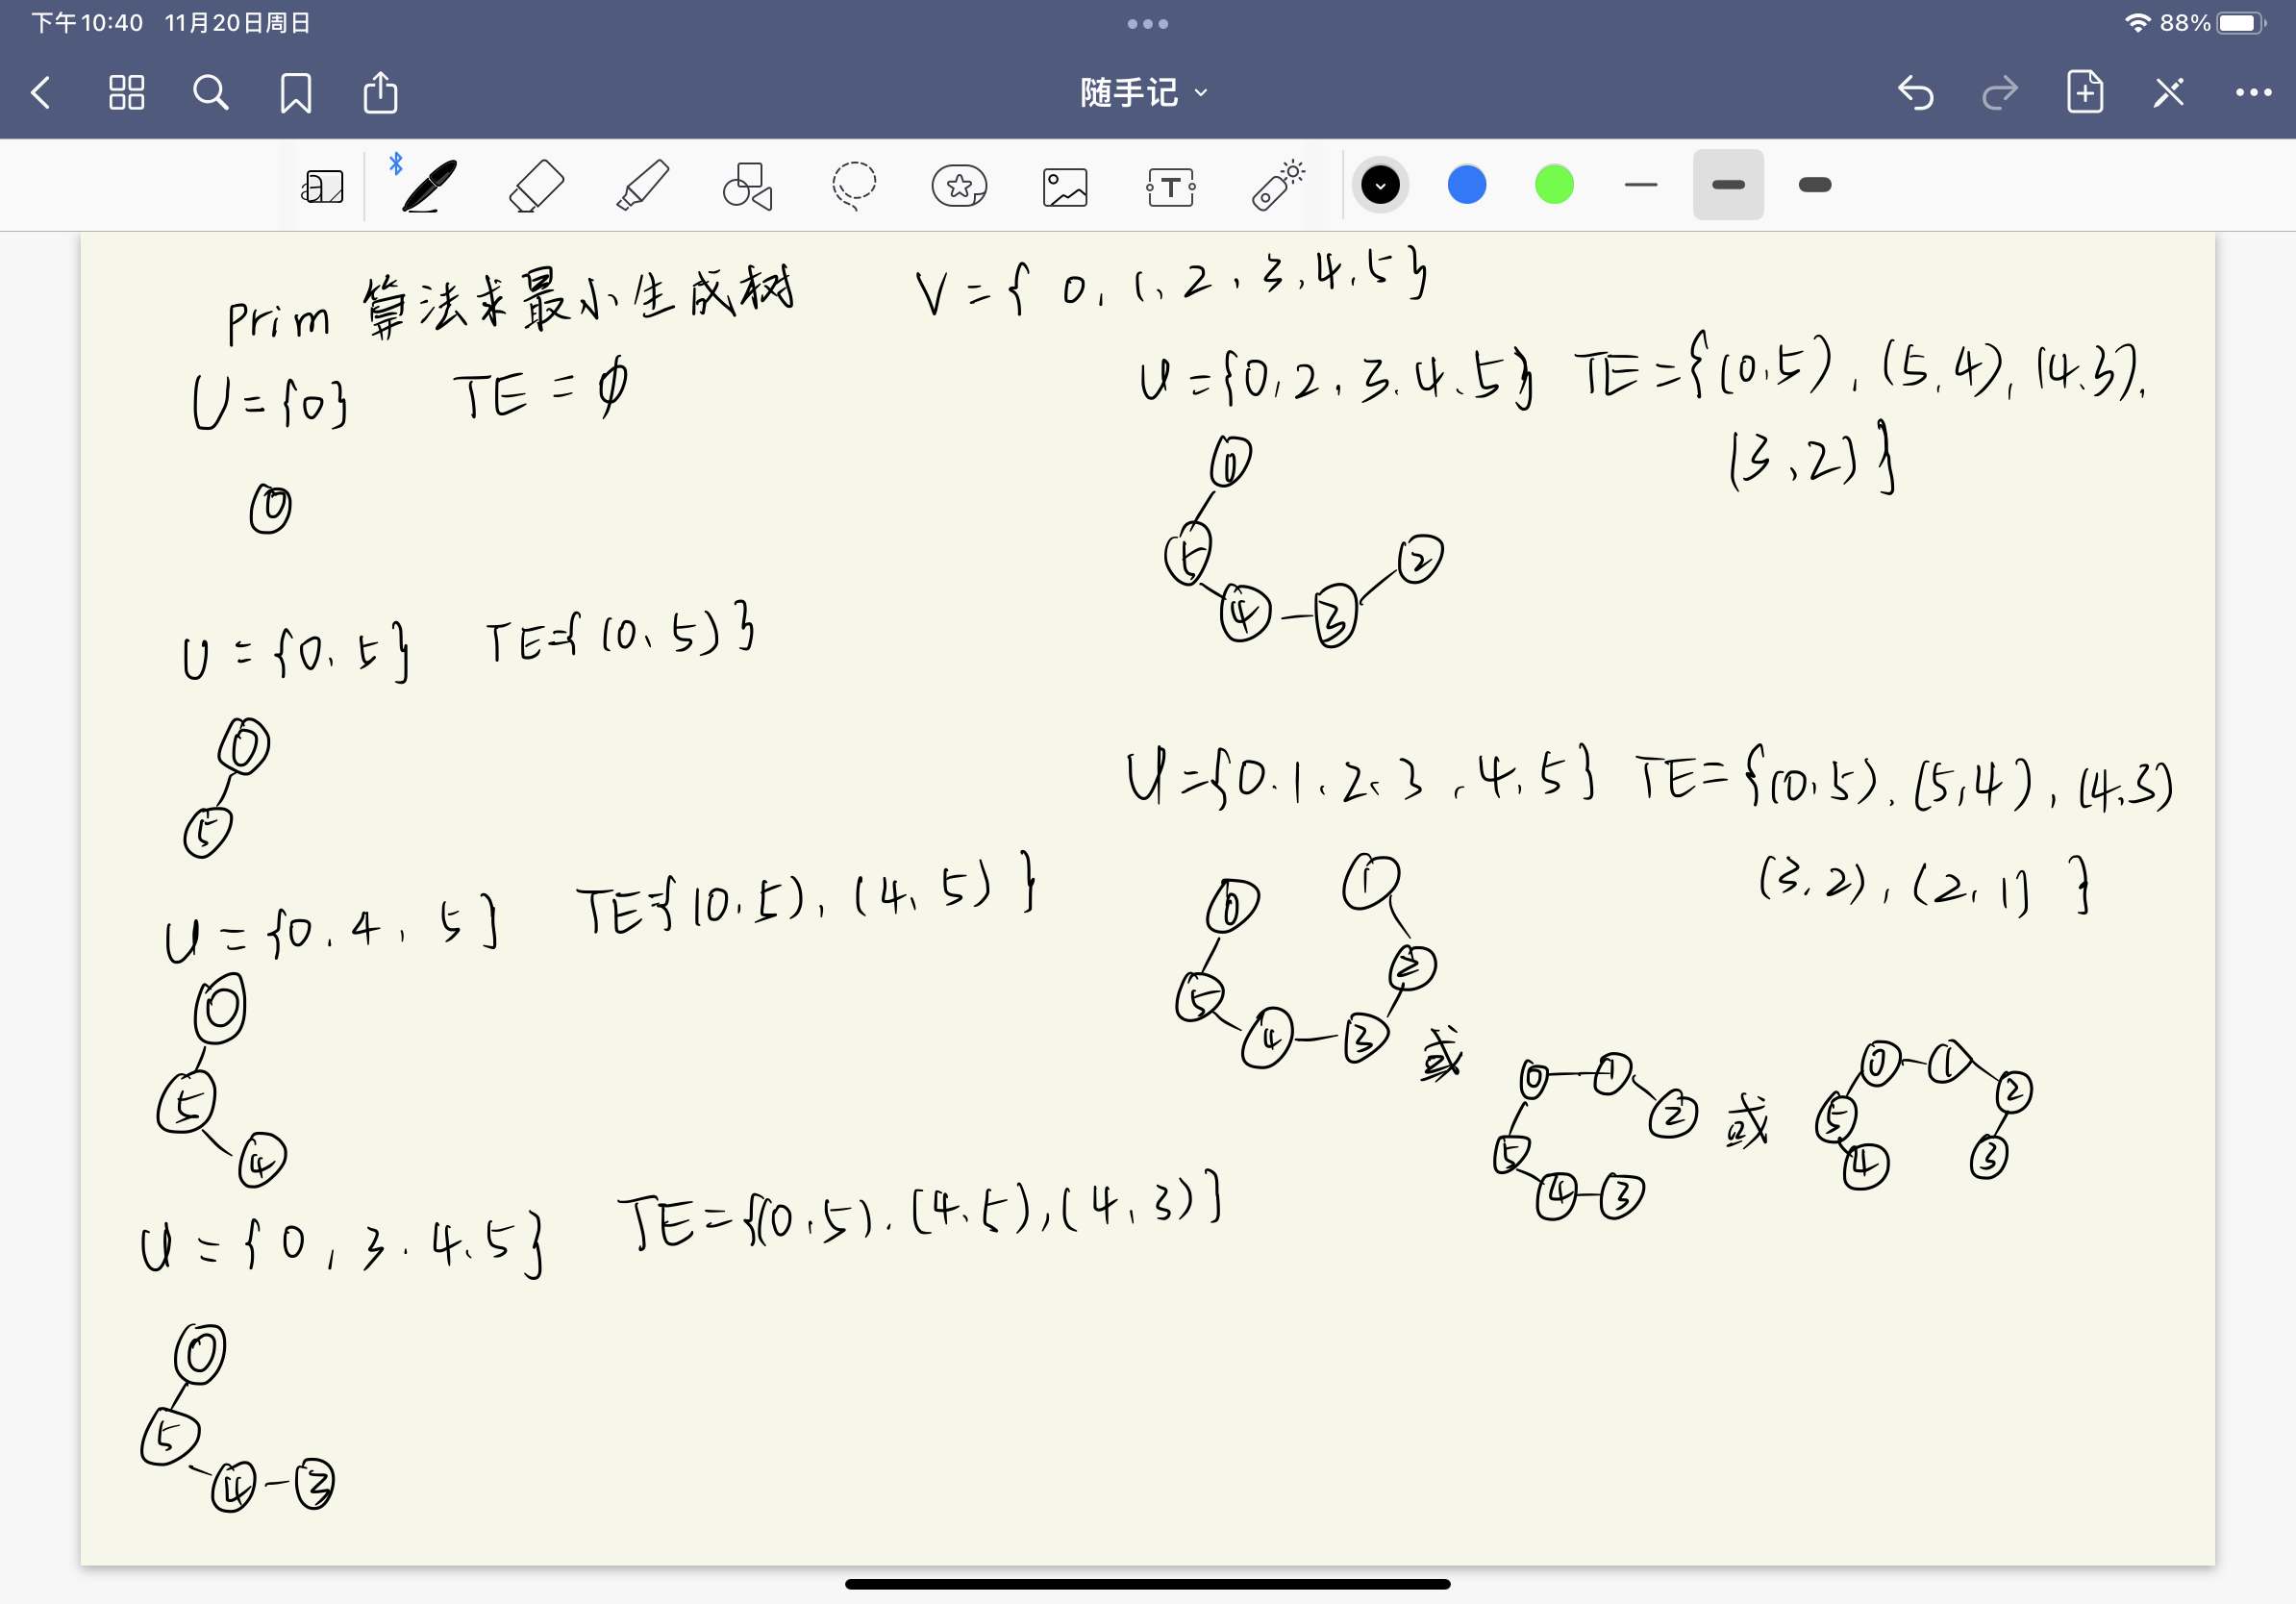 下午10:40 11月20日周日
88%
随手记
T
Prim 算法求最小生成树
V={ 0, 1, 2, 3, 4, 5}
U={0} TE=∅
0
U={0, 5} TE={(0, 5)}
0
5
U={0, 4, 5} TE={(0,5), (4, 5)}
0
5
4
U={0, 3, 4, 5} TE={(0,5), (4,5), (4,3)}
0
5
4 3
U={0, 2, 3, 4, 5} TE={(0,5), (5,4), (4,3),
(3,2)}
0
5 2
4 3
U={0, 1, 2, 3, 4, 5} TE={(0,5), (5,4), (4,3)
(3,2), (2,1)}
0 1
5 2
4 3 或
0 1
2
5
4 3
或
0 1
5 2
4 3